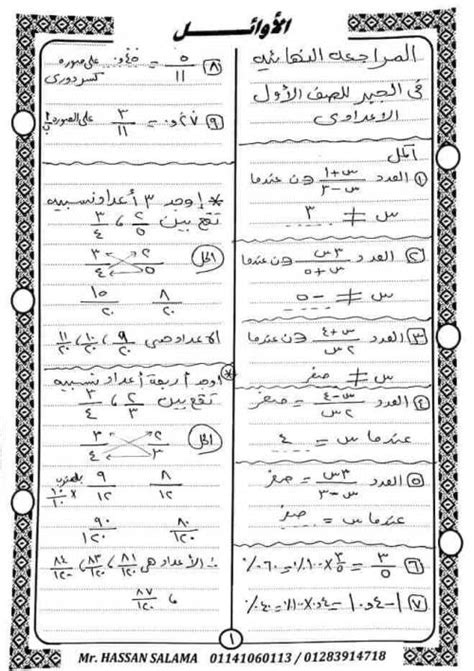 الأوائــل
المراجعه النهائيه
فى الجبر للصف الأول
الاعدادى
أكمل
① العدد (س+١)/(س-٣) ∈ ن عندما
س ≠ ٣
② العدد ٣س/(س+٥) ∈ ن عندما
س ≠ -٥
③ العدد (س+٤)/٢س ∈ ن عندما
س ≠ صفر
④ العدد (س-٤)/٢س = صفر
عندما س = ٤
⑤ العدد ٣س/(س-٣) = صفر
عندما س = صفر
⑥ ٣/٥ = ٣/٥ × ١٠٠٪ = ٦٠٪
⑦ |-٤و٠| = ٤و٠ × ١٠٠٪ = ٤٠٪
⑧ ٥/١١ = ٤٥و٠ على صوره
كسر دورى
⑨ ٢٧و٠ = ٣/١١ على الصوره أ/ب
* اوجد ٣ أعداد نسبيه
تقع بين ٢/٥ ، ٣/٤
الحل
٢/٥ ٣/٤
٨/٢٠ ١٥/٢٠
الاعداد هى ٩/٢٠ ، ١٠/٢٠ ، ١١/٢٠
* اوجد أربعة أعداد نسبيه
تقع بين ٢/٣ ، ٣/٤
الحل
٢/٣ ٣/٤
٨/١٢ ٩/١٢ بالضرب × ١٠/١٠
٨٠/١٢٠ ٩٠/١٢٠
∴ الأعداد هى ٨١/١٢٠ ، ٨٣/١٢٠ ، ٨٤/١٢٠
، ٨٧/١٢٠
١
Mr. HASSAN SALAMA 01141060113 / 01283914718